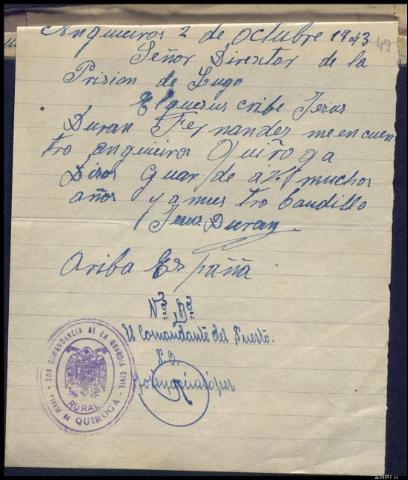 Anqueiros 2 de Octubre 1943
49
Señor Director de la
Prision de Lugo
El que sus cribe Jesus
Duran Fernandez me en cuen
tro anquieiros Quiroga
Dios Guar de a muchos
años y a nues tro Caudillo
Jesus Duran
Ariba España
Vº Bº
El Comandante del Puesto.
COMANDANCIA DE LA GUARDIA CIVIL
RURAL
PUESTO DE QUIROGA